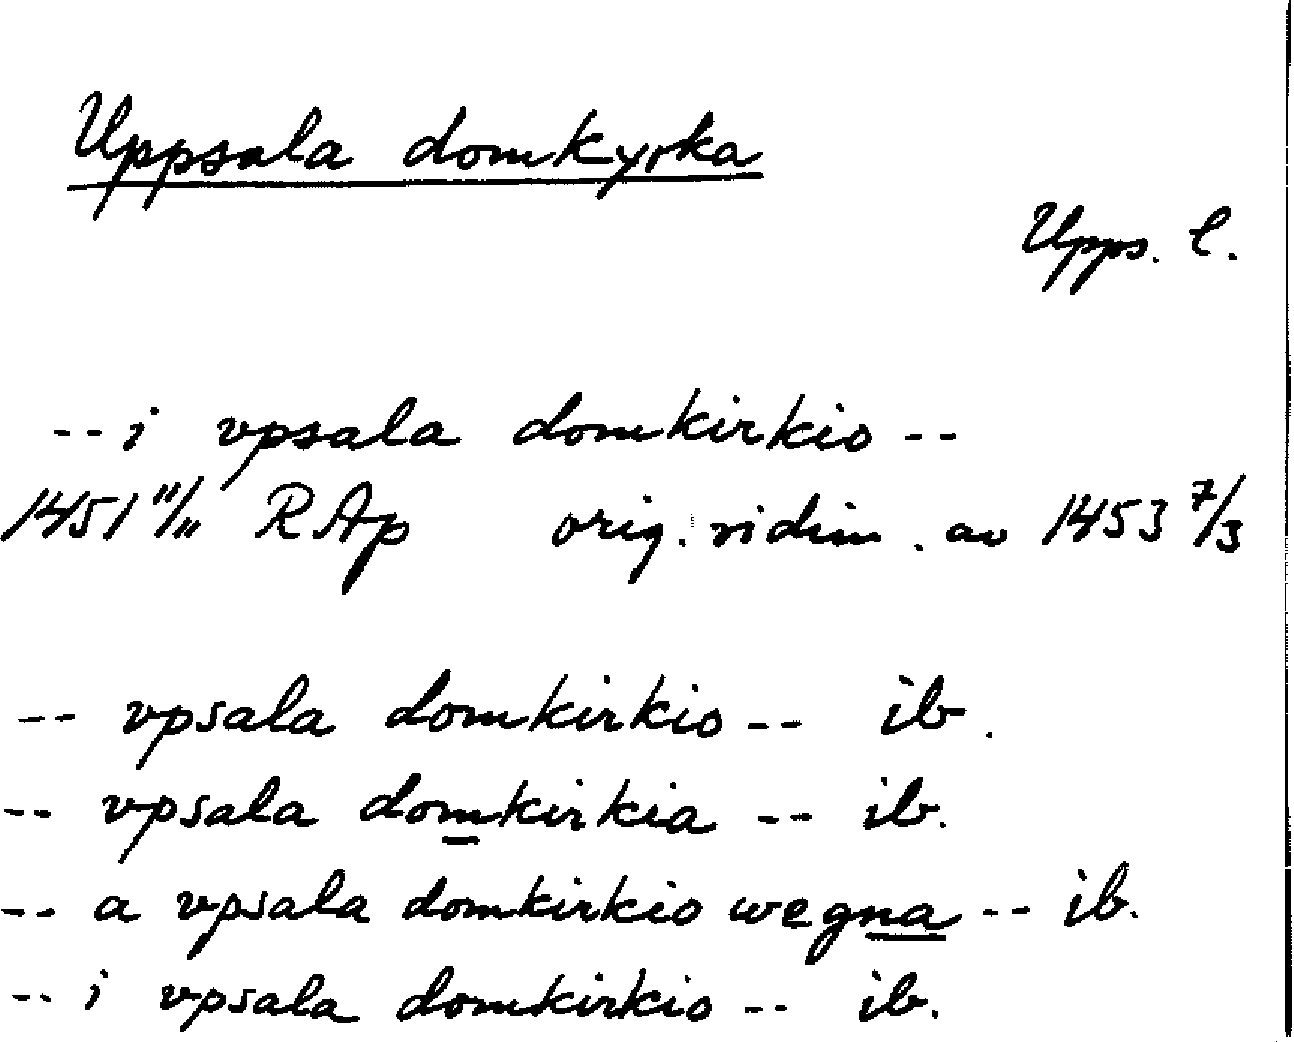 Uppsala domkyrka
Upps. l.
-- i vpsala domkirkio --
1451 11/11 RAp orig. vidim. av 1453 7/3
-- vpsala domkirkio -- ib.
-- vpsala domkirkia -- ib.
-- a vpsala domkirkio wegna -- ib.
-- i vpsala domkirkio -- ib.